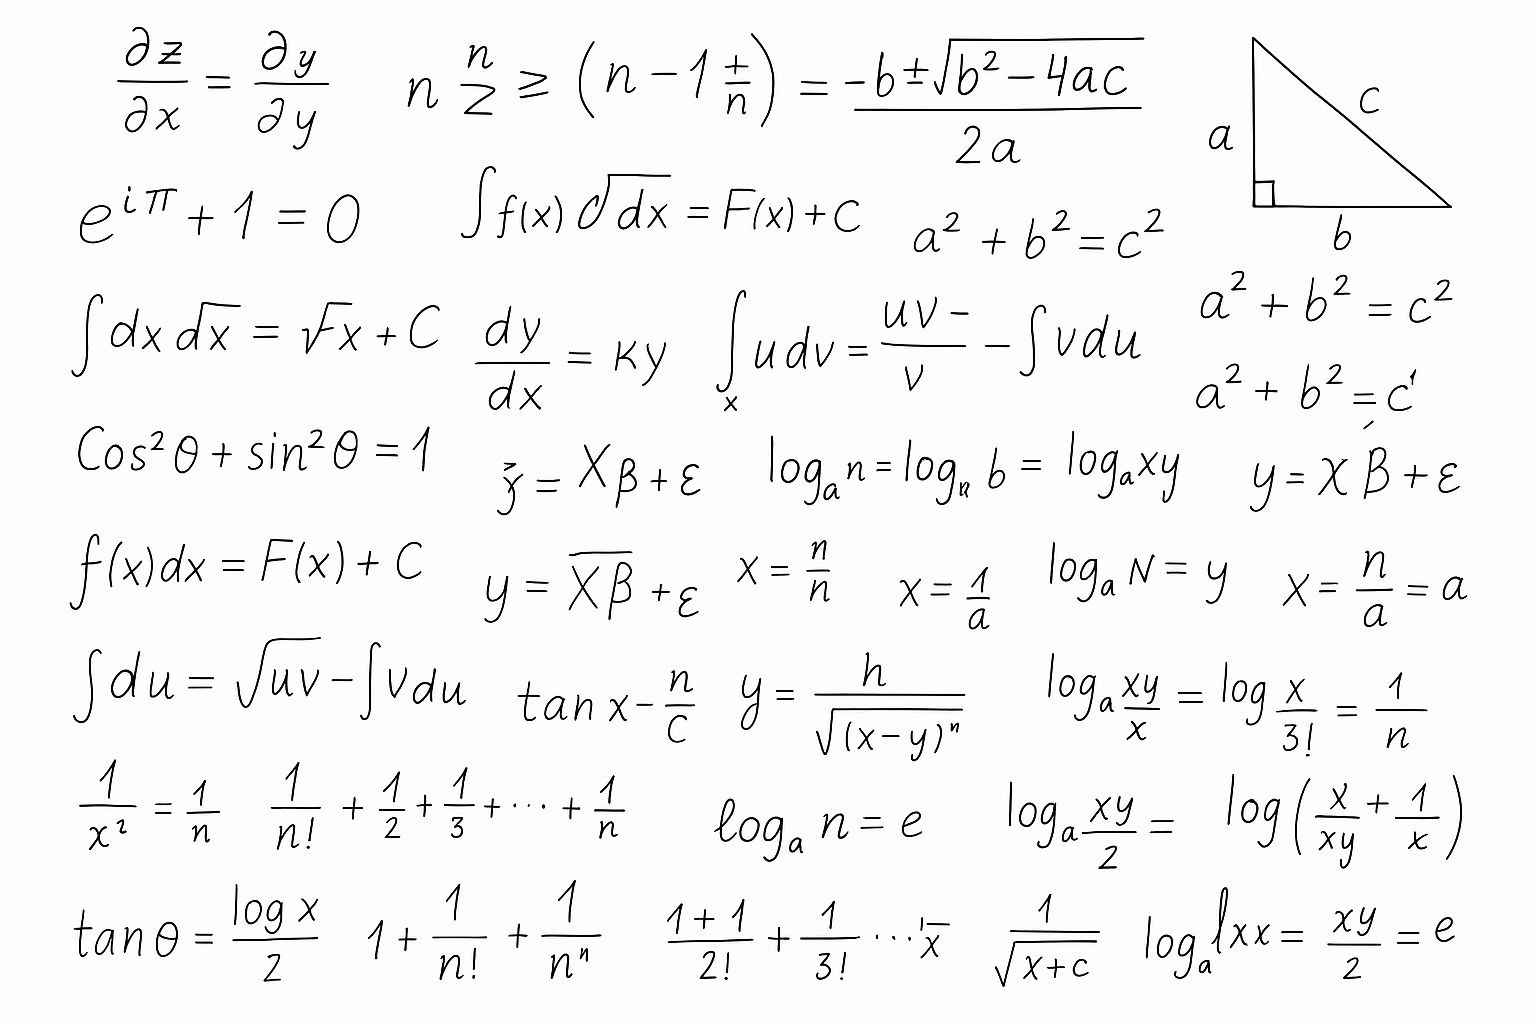 ∂z/∂x = ∂y/∂y   n n/z ≥ (n − 1 +/n) = −b ± √(b² − 4ac) / 2a
a   c
b
e^{iπ} + 1 = 0   ∫f(x) √dx = F(x) + C   a² + b² = c²
∫dx √dx = √x + C   dy/dx = κy   ∫ₓ u dv = uv−/v − ∫v du   a² + b² = c²
a² + b² = c¹
Cos²θ + sin²θ = 1   ξ = Xβ + ε   logₐ n = logₙ b = logₐ xy   y = Xβ + ε
f(x)dx = F(x) + C   y = X̅β̅ + ε   x = n/n   x = 1/a   logₐ N = y   X = n/a = a
∫du = √uv − ∫v du   tan x − n/c   y = h/√(x−y)ⁿ   logₐ xy/x = log x/3! = 1/n
1/x² = 1/n   1/n! + 1/2 + 1/3 + ⋯ + 1/n   logₐ n = e   logₐ xy/2 =   log(x/xy + 1/x)
tan θ = log x/2   1 + 1/n! + 1/nⁿ   1+1/2! + 1/3! ⋯ x̅   1/√x+c   logₐ lxx = xy/2 = e